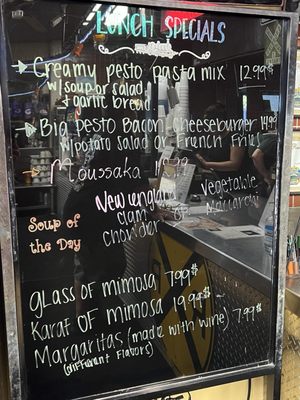 LUNCH SPECIALS
Creamy pesto pasta mix 12.99$
w/ soup or salad
& garlic bread.
Big Pesto Bacon Cheeseburger 14.99
w/ potato salad or French Fries
Moussaka
New england
clam
chowder
or
Vegetable
Soup of
the Day
glass of mimosa 7.99$
Karaf OF mimosa 19.99$
Margaritas (made with wine) 7.99$
(different flavors)